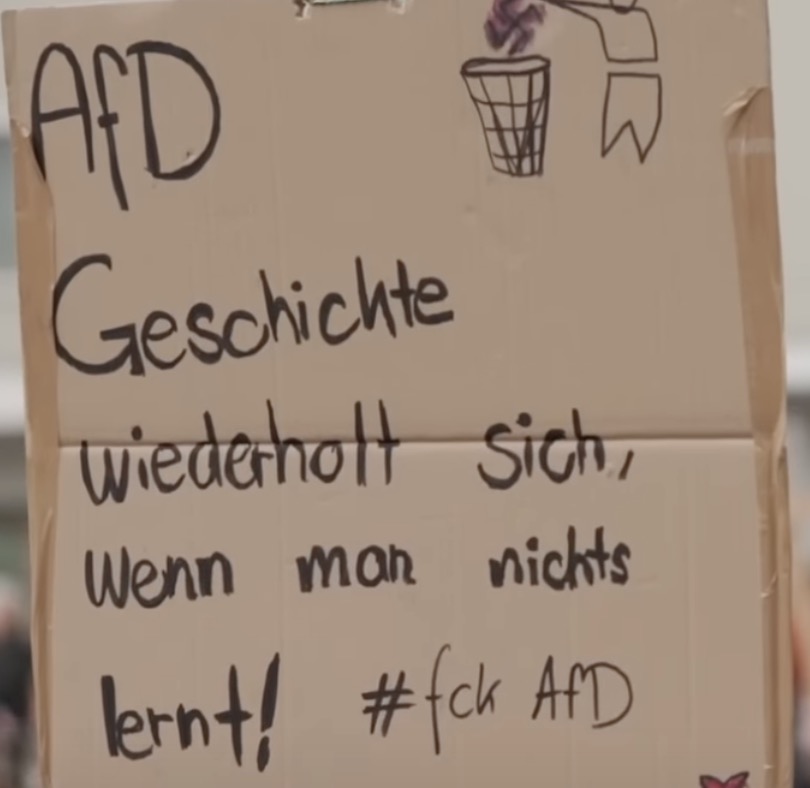 AfD
Geschichte
wiederholt sich,
wenn man nichts
lernt! #fck AfD